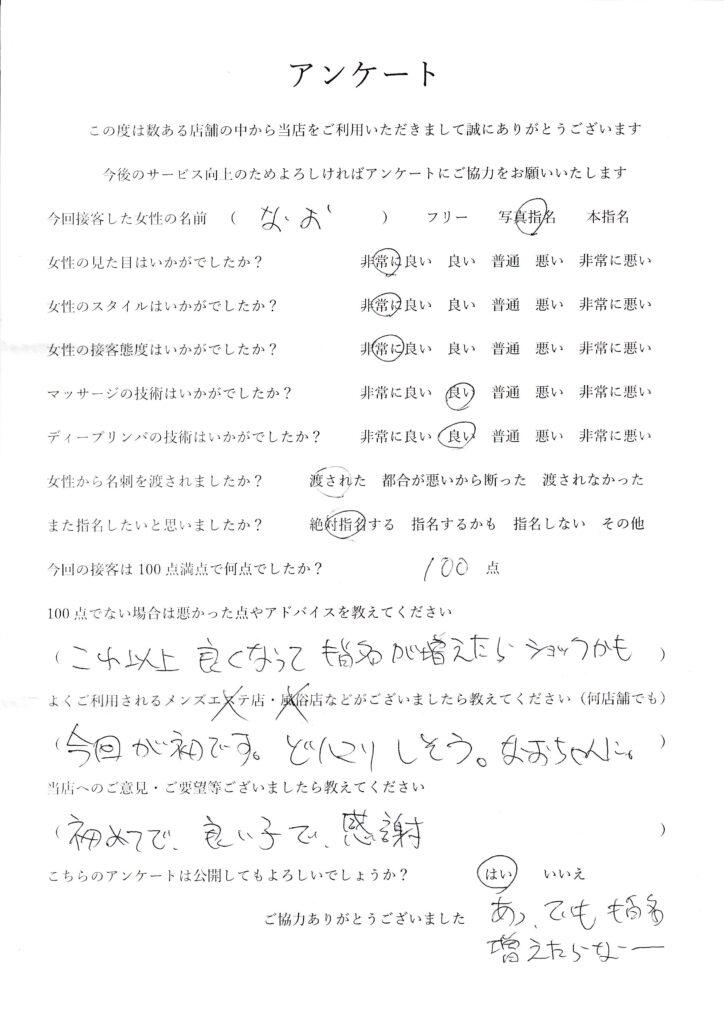 アンケート
この度は数ある店舗の中から当店をご利用いただきまして誠にありがとうございます
今後のサービス向上のためよろしければアンケートにご協力をお願いいたします
今回接客した女性の名前 ( なお ) フリー 写真指名 本指名
女性の見た目はいかがでしたか? 非常に良い 良い 普通 悪い 非常に悪い
女性のスタイルはいかがでしたか? 非常に良い 良い 普通 悪い 非常に悪い
女性の接客態度はいかがでしたか? 非常に良い 良い 普通 悪い 非常に悪い
マッサージの技術はいかがでしたか? 非常に良い 良い 普通 悪い 非常に悪い
ディープリンパの技術はいかがでしたか? 非常に良い 良い 普通 悪い 非常に悪い
女性から名刺を渡されましたか? 渡された 都合が悪いから断った 渡されなかった
また指名したいと思いましたか? 絶対指名する 指名するかも 指名しない その他
今回の接客は100点満点で何点でしたか? 100 点
100点でない場合は悪かった点やアドバイスを教えてください
( これ以上 良くなって 指名が増えたら ショックかも )
よくご利用されるメンズエステ店・風俗店などがございましたら教えてください(何店舗でも)
( 今回が初です。どハマりしそう。なおちゃんに。 )
当店へのご意見・ご要望等ございましたら教えてください
( 初めてで、良い子で、感謝 )
こちらのアンケートは公開してもよろしいでしょうか? はい いいえ
ご協力ありがとうございました
あっ、でも 指名
増えたらなー